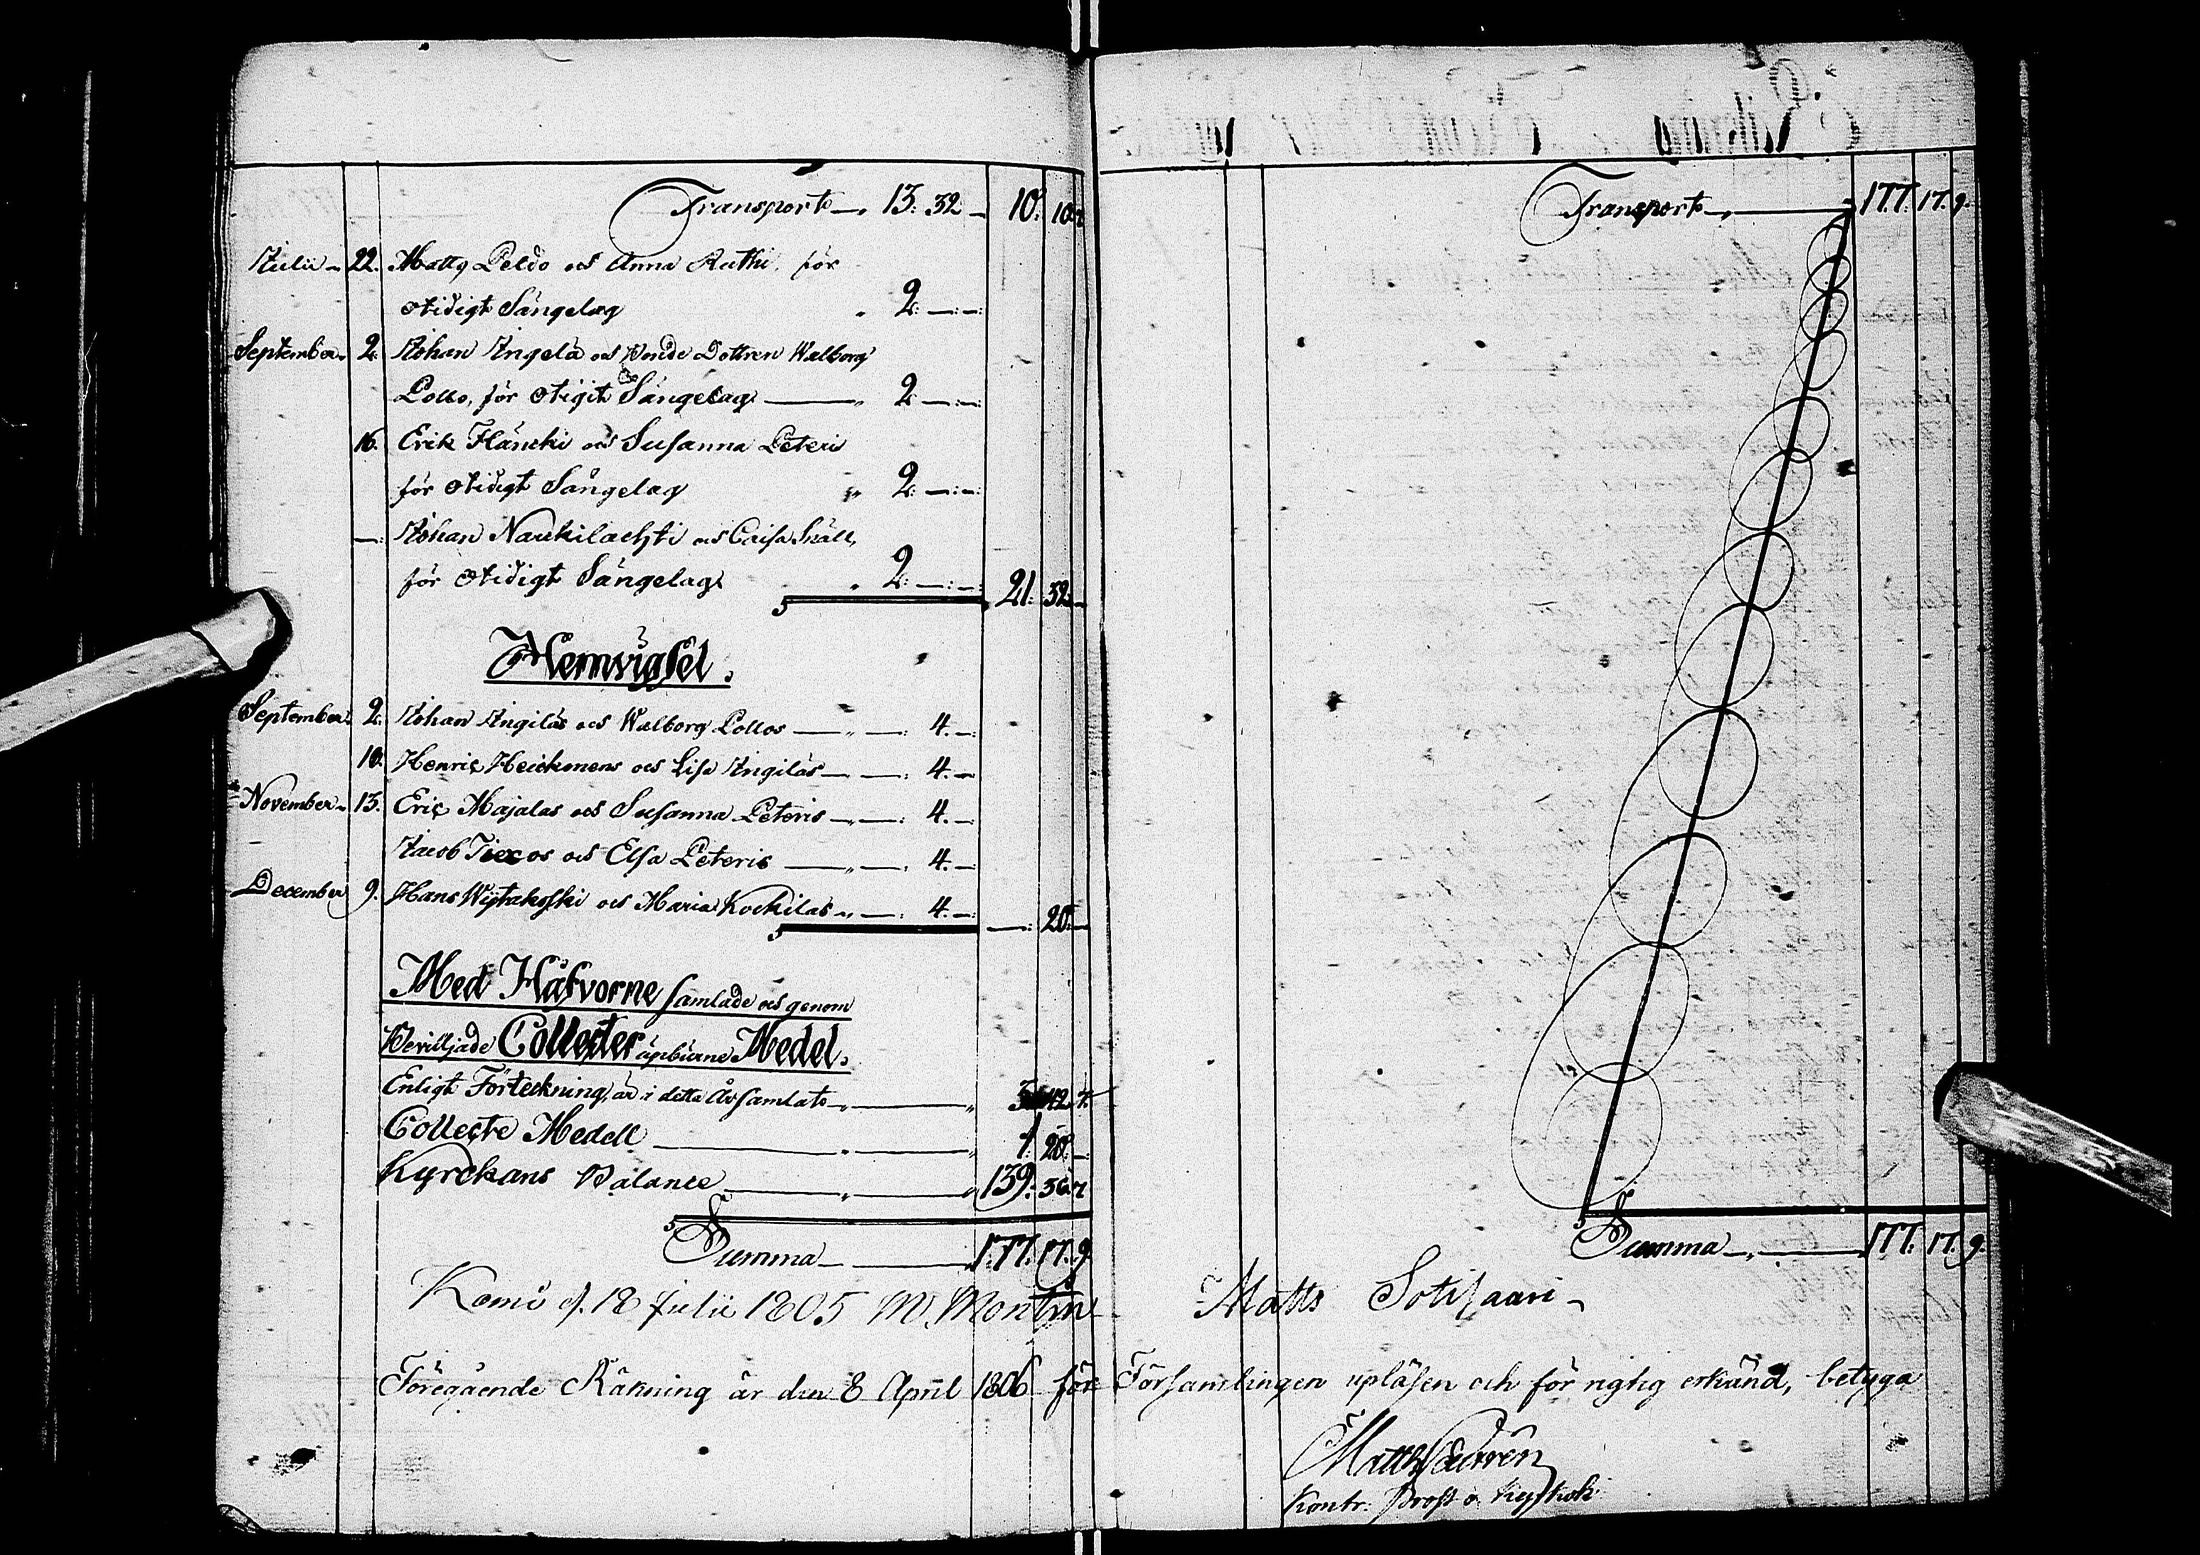 Transport 13. 32. 10. 10.
Julii 22. Matts Peldo och Anna Ruthi, för
otidigt Sängelag 2.
September 2. Johan Angela och Bonde Dottren Walborg
Lollo, för otigit Sängelag 2.
16. Erik Häncki och Susanna Peteri
för otidigt Sängelag 2.
Johan Naukilachti och Caisa Skäll,
för otidigt Sängelag 2. 21. 32.
Hemvigsel.
September 2. Johan Angilas och Walborg Lollos 4.
10. Henric Heickmens och Lisa Angilas 4.
November 13. Eric Majalas och Susanna Peteris 4.
Jacob och Elsa Peteris 4.
December 9. Hans och Maria Kockilas 4. 20.
Med Håfvorne samlade och genom
Beviljade Collecter upburne Medel.
Enligt Förteckning, är i detta År samlats 42.
Collecte Medell 1. 20.
Kyrckans Balance 139. 36.
Summa 177. 17. 9
Kemi d. 18 Julii 1805 M. Montin
Transport 177. 17. 9.
Summa 177. 17. 9.
Matts Sotisaari
Föregående Räkning är den 8 April 1806 för Församlingen upläsen och för rigtig erkänd, betyga
Matth
Kontr. Prost o. Kyrkoh.